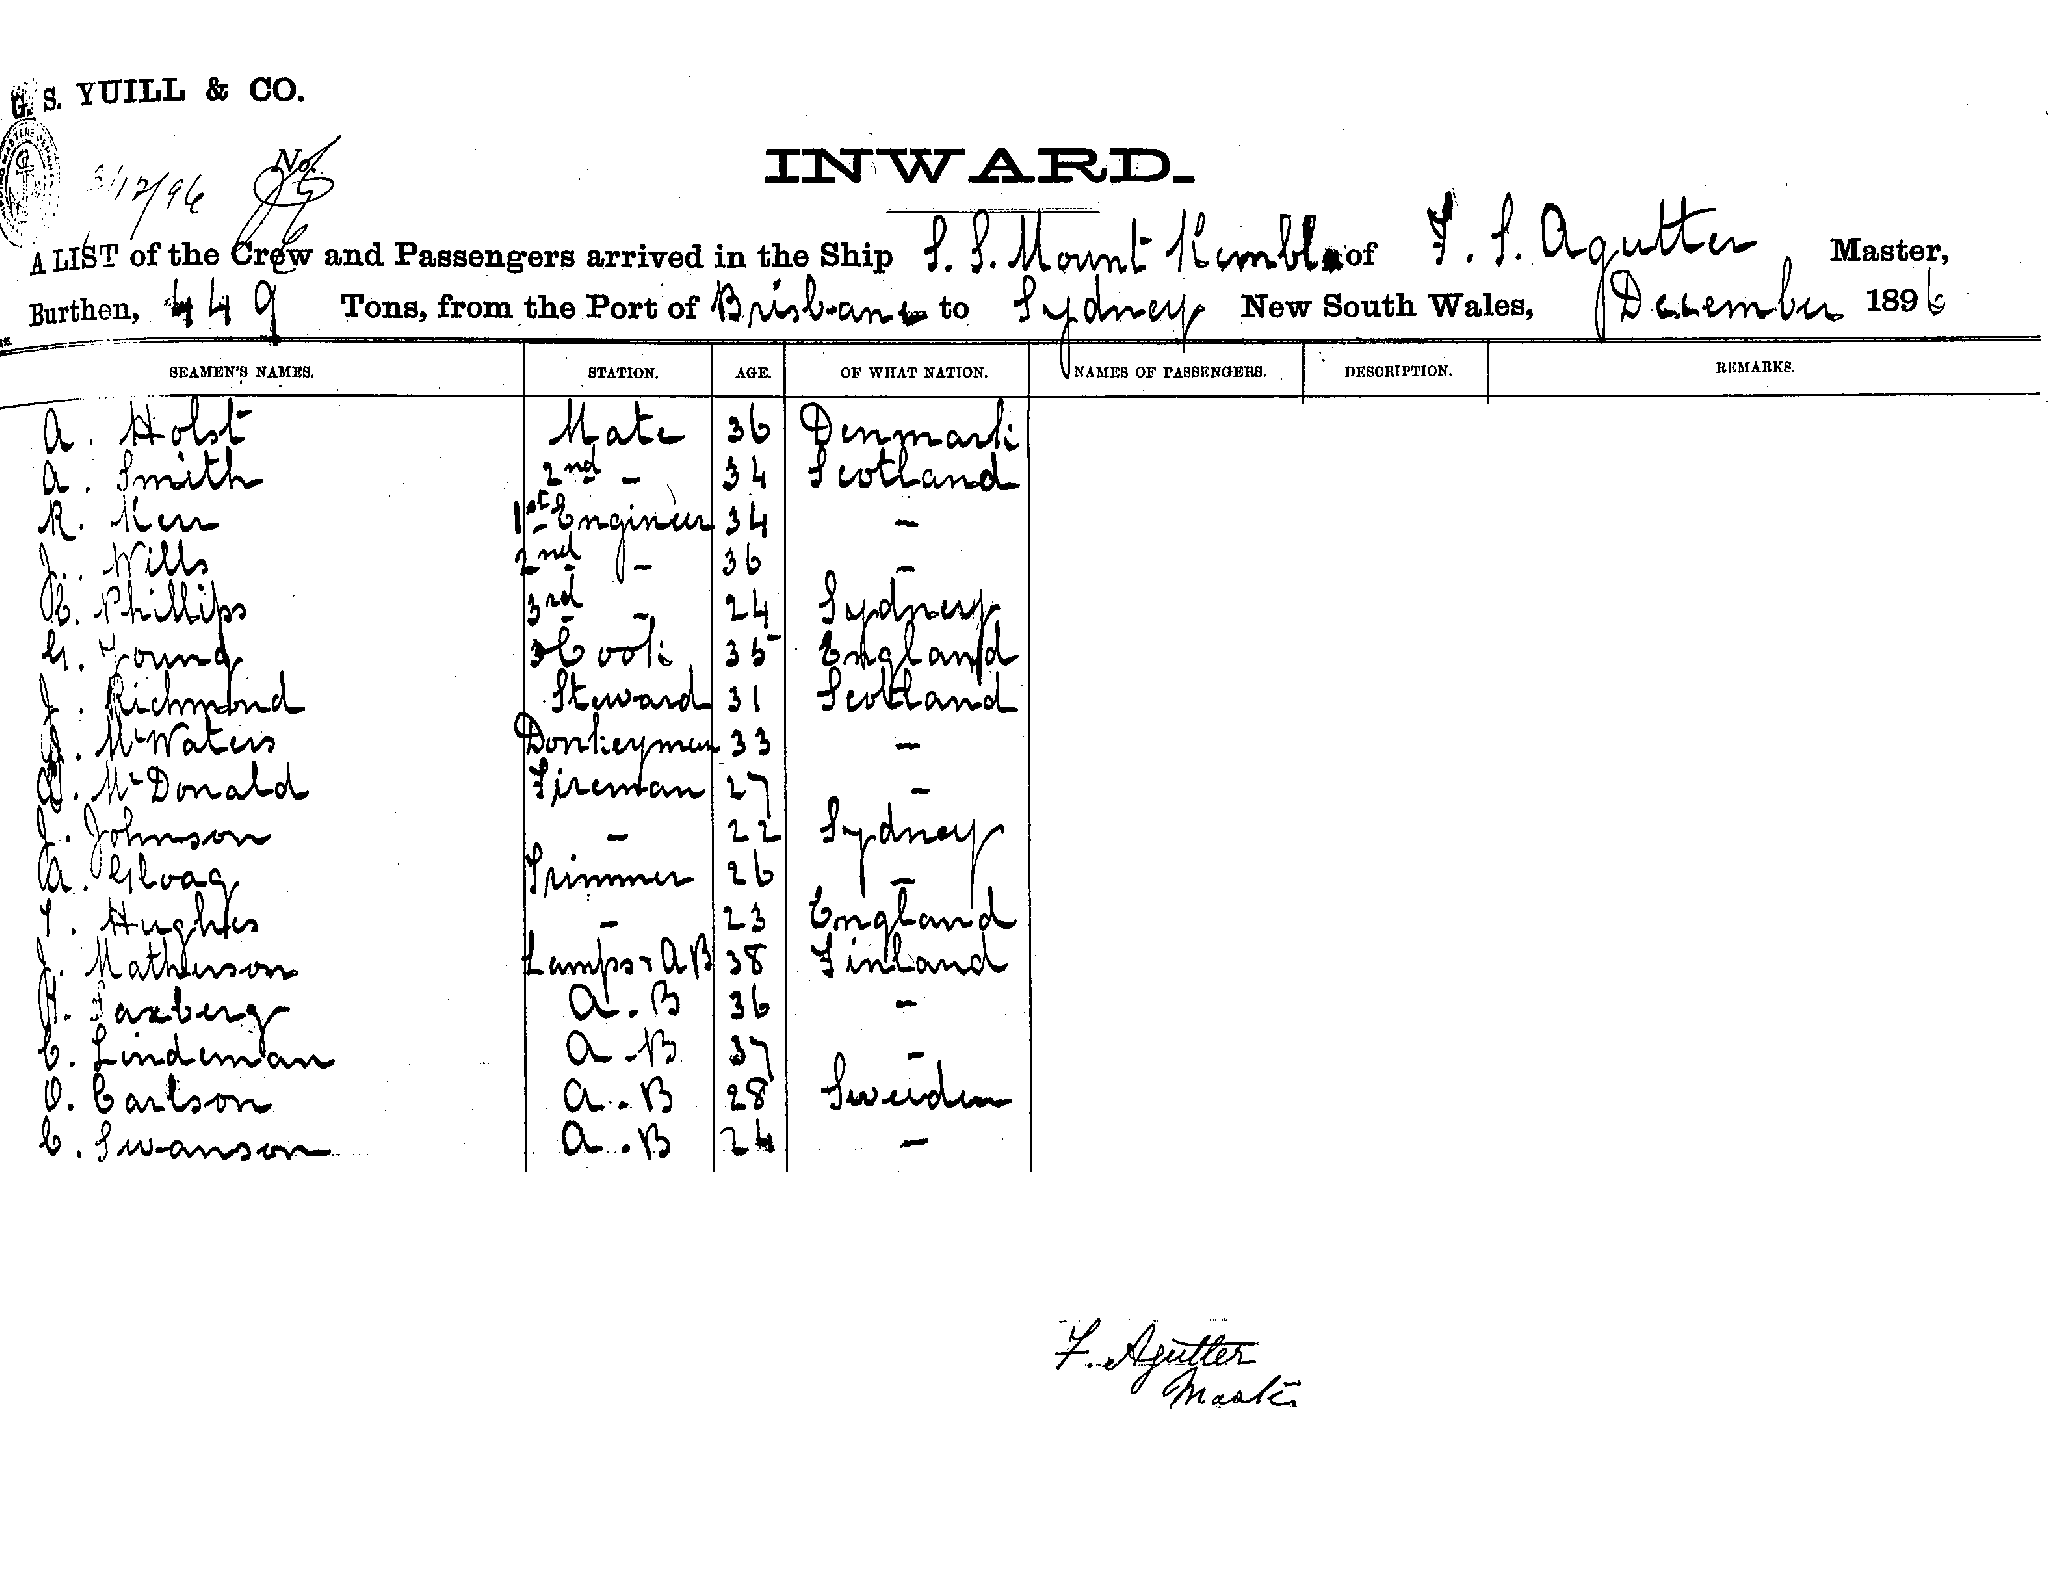 G. S. YUILL & CO.
3/12/96 No.
INWARD.
A LIST of the Crew and Passengers arrived in the Ship S. S. Mount Kembla of F. S. Agutter Master,
Burthen, 449 Tons, from the Port of Brisbane to Sydney New South Wales, December 1896
SEAMEN'S NAMES. STATION. AGE. OF WHAT NATION. NAMES OF PASSENGERS. DESCRIPTION. REMARKS.
A. Holst Mate 36 Denmark
A. Smith 2nd - 34 Scotland
R. Kerr 1st Engineer 34 -
J. Wills 2nd - 36 -
C. Phillips 3rd - 24 Sydney
G. Young Cook 35 England
J. Richmond Steward 31 Scotland
McWaters Donkeyman 33 -
McDonald Fireman 27 -
J. Johnson - 22 Sydney
A. Gloag Trimmer 26 -
T. Hughes - 23 England
J. Matherson Lamps & AB 38 Finland
H. Saxberg A.B 36 -
C. Lindeman A.B 37 -
O. Carlson A.B 28 Sweeden
C. Swanson A.B 24 -
F. Agutter
Master